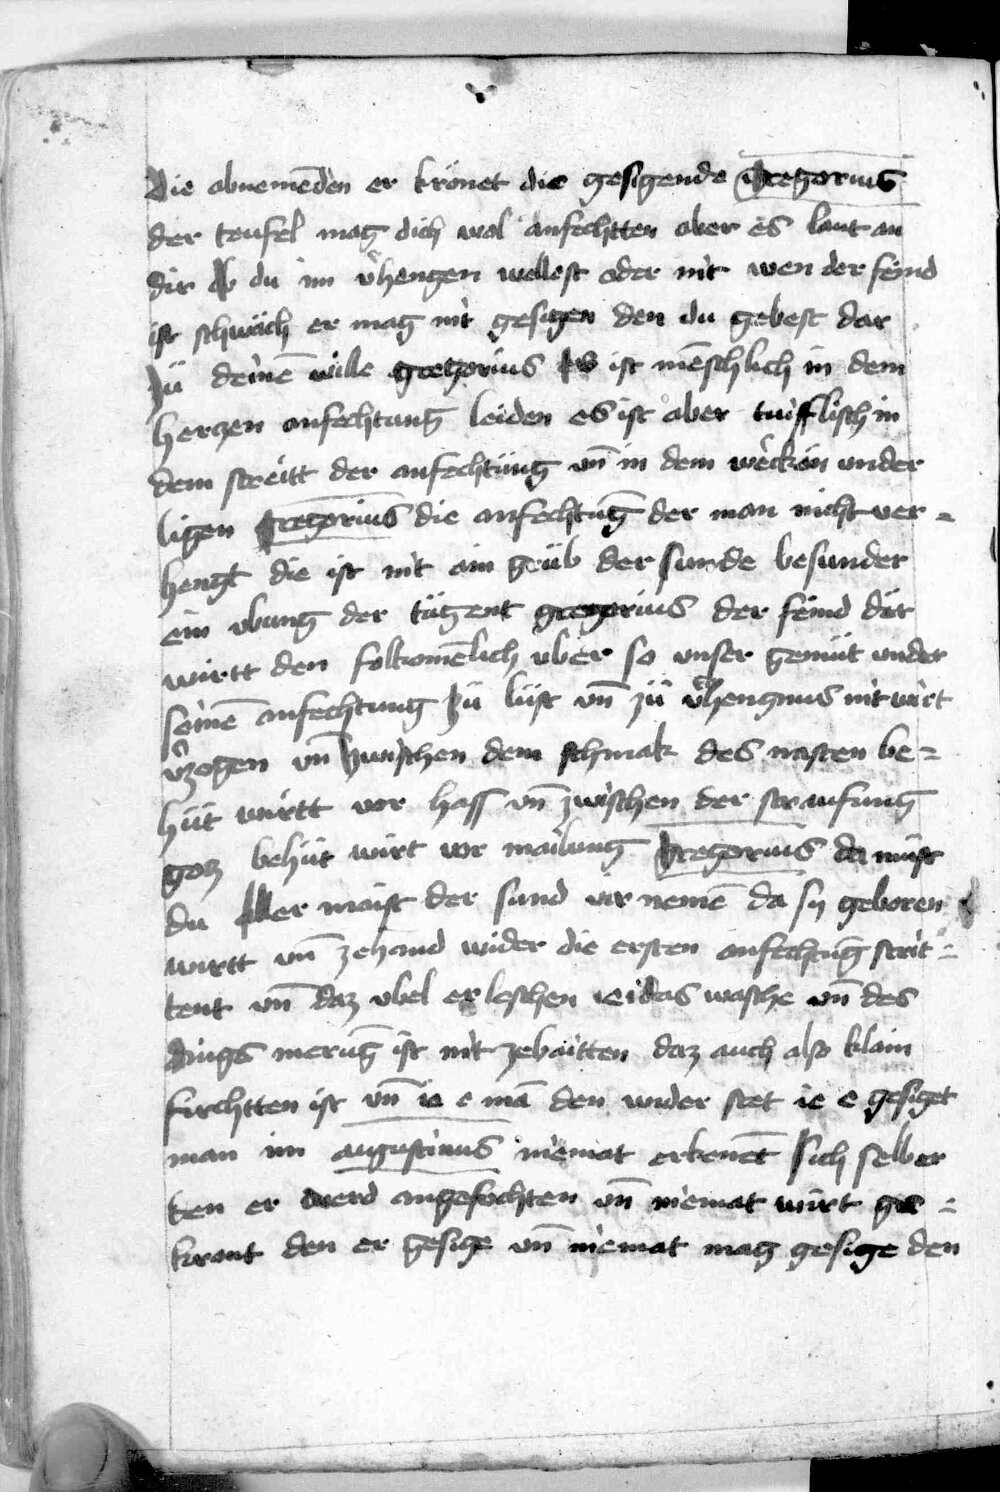 die abnemēden er krönet die gesigende Gregorius
der teufel mag dich wol anfechtten aber es laut an
dir ob du im v̄hengen wellest oder nit wen der feind
ist schwach er mag nit gesigen den du gebest dar
zü deinē wille gregorius Es ist mēschlich in dem
herzen anfechtung leiden es ist aber tuifflisch in
dem streitt der anfechtüng vn̄ in dem wercken under
ligen Gregorius die anfechtūg der man nicht ver =
hengt die ist nit ain grüb der sunde besunder
ein vbung der tügent gregorius der feind der
wirtt den folkomēlich vber so vnser gemüt vnder
seinē anfechtung zü lüst vn̄ zü v̄hengnus nit wirt
v̄zogen vn̄ zwischen dem schmak des nasten be =
hüt wirtt vor hass vn̄ zwischen der straufung
gotz behüt wirt vor mailung Gregorius da müst
du aller maist der sund war nemē da sy geboren
wirtt vn̄ zehand wider die ersten anfechtūg strit =
tent vn̄ daz vbel erleschen ee das wasche vn̄ des
dings merūg ist nit zebaitten daz auch also klain
furchtten ist vn̄ ie e mā den wider stet ie e gesiget
man im augustinus niemat erkenet sich selber
den er werd angefochten vn̄ niemat wirt ge =
kront den er gesige vn̄ niemat mag gesige den